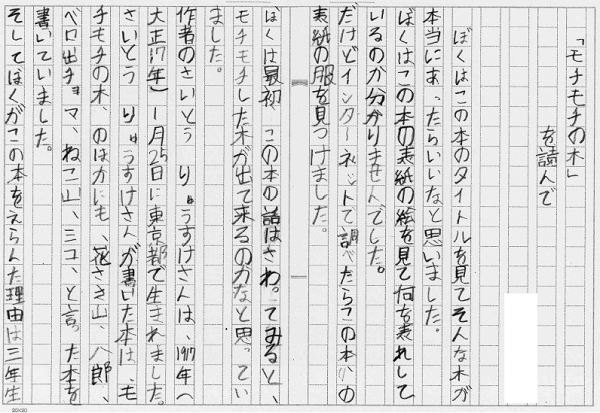 「モチモチの木」
を読んで
ぼくはこの本のタイトルを見てそんな木が
本当にあったらいいなと思いました。
ぼくはこの本の表紙の絵を見て何を表れして
いるのか分かりませんでした。
だけどインターネットで調べたらこの本の
表紙の服を見つけました。
ぼくは最初、この本の話はさわってみると、
モチモチした木が出て来るのかなと思ってい
ました。
作者のさいとう りゅうすけさんは、1917年(
大正17年)1月25日に東京都で生まれました。
さいとう りゅうすけさんが書いた本は、モ
チモチの木、のほかにも、花さき山、八郎、
ベロ出チョマ、ねこ山、ミコ、と言った本を
書いていました。
そしてぼくがこの本をえらんだ理由は三年生
20×20